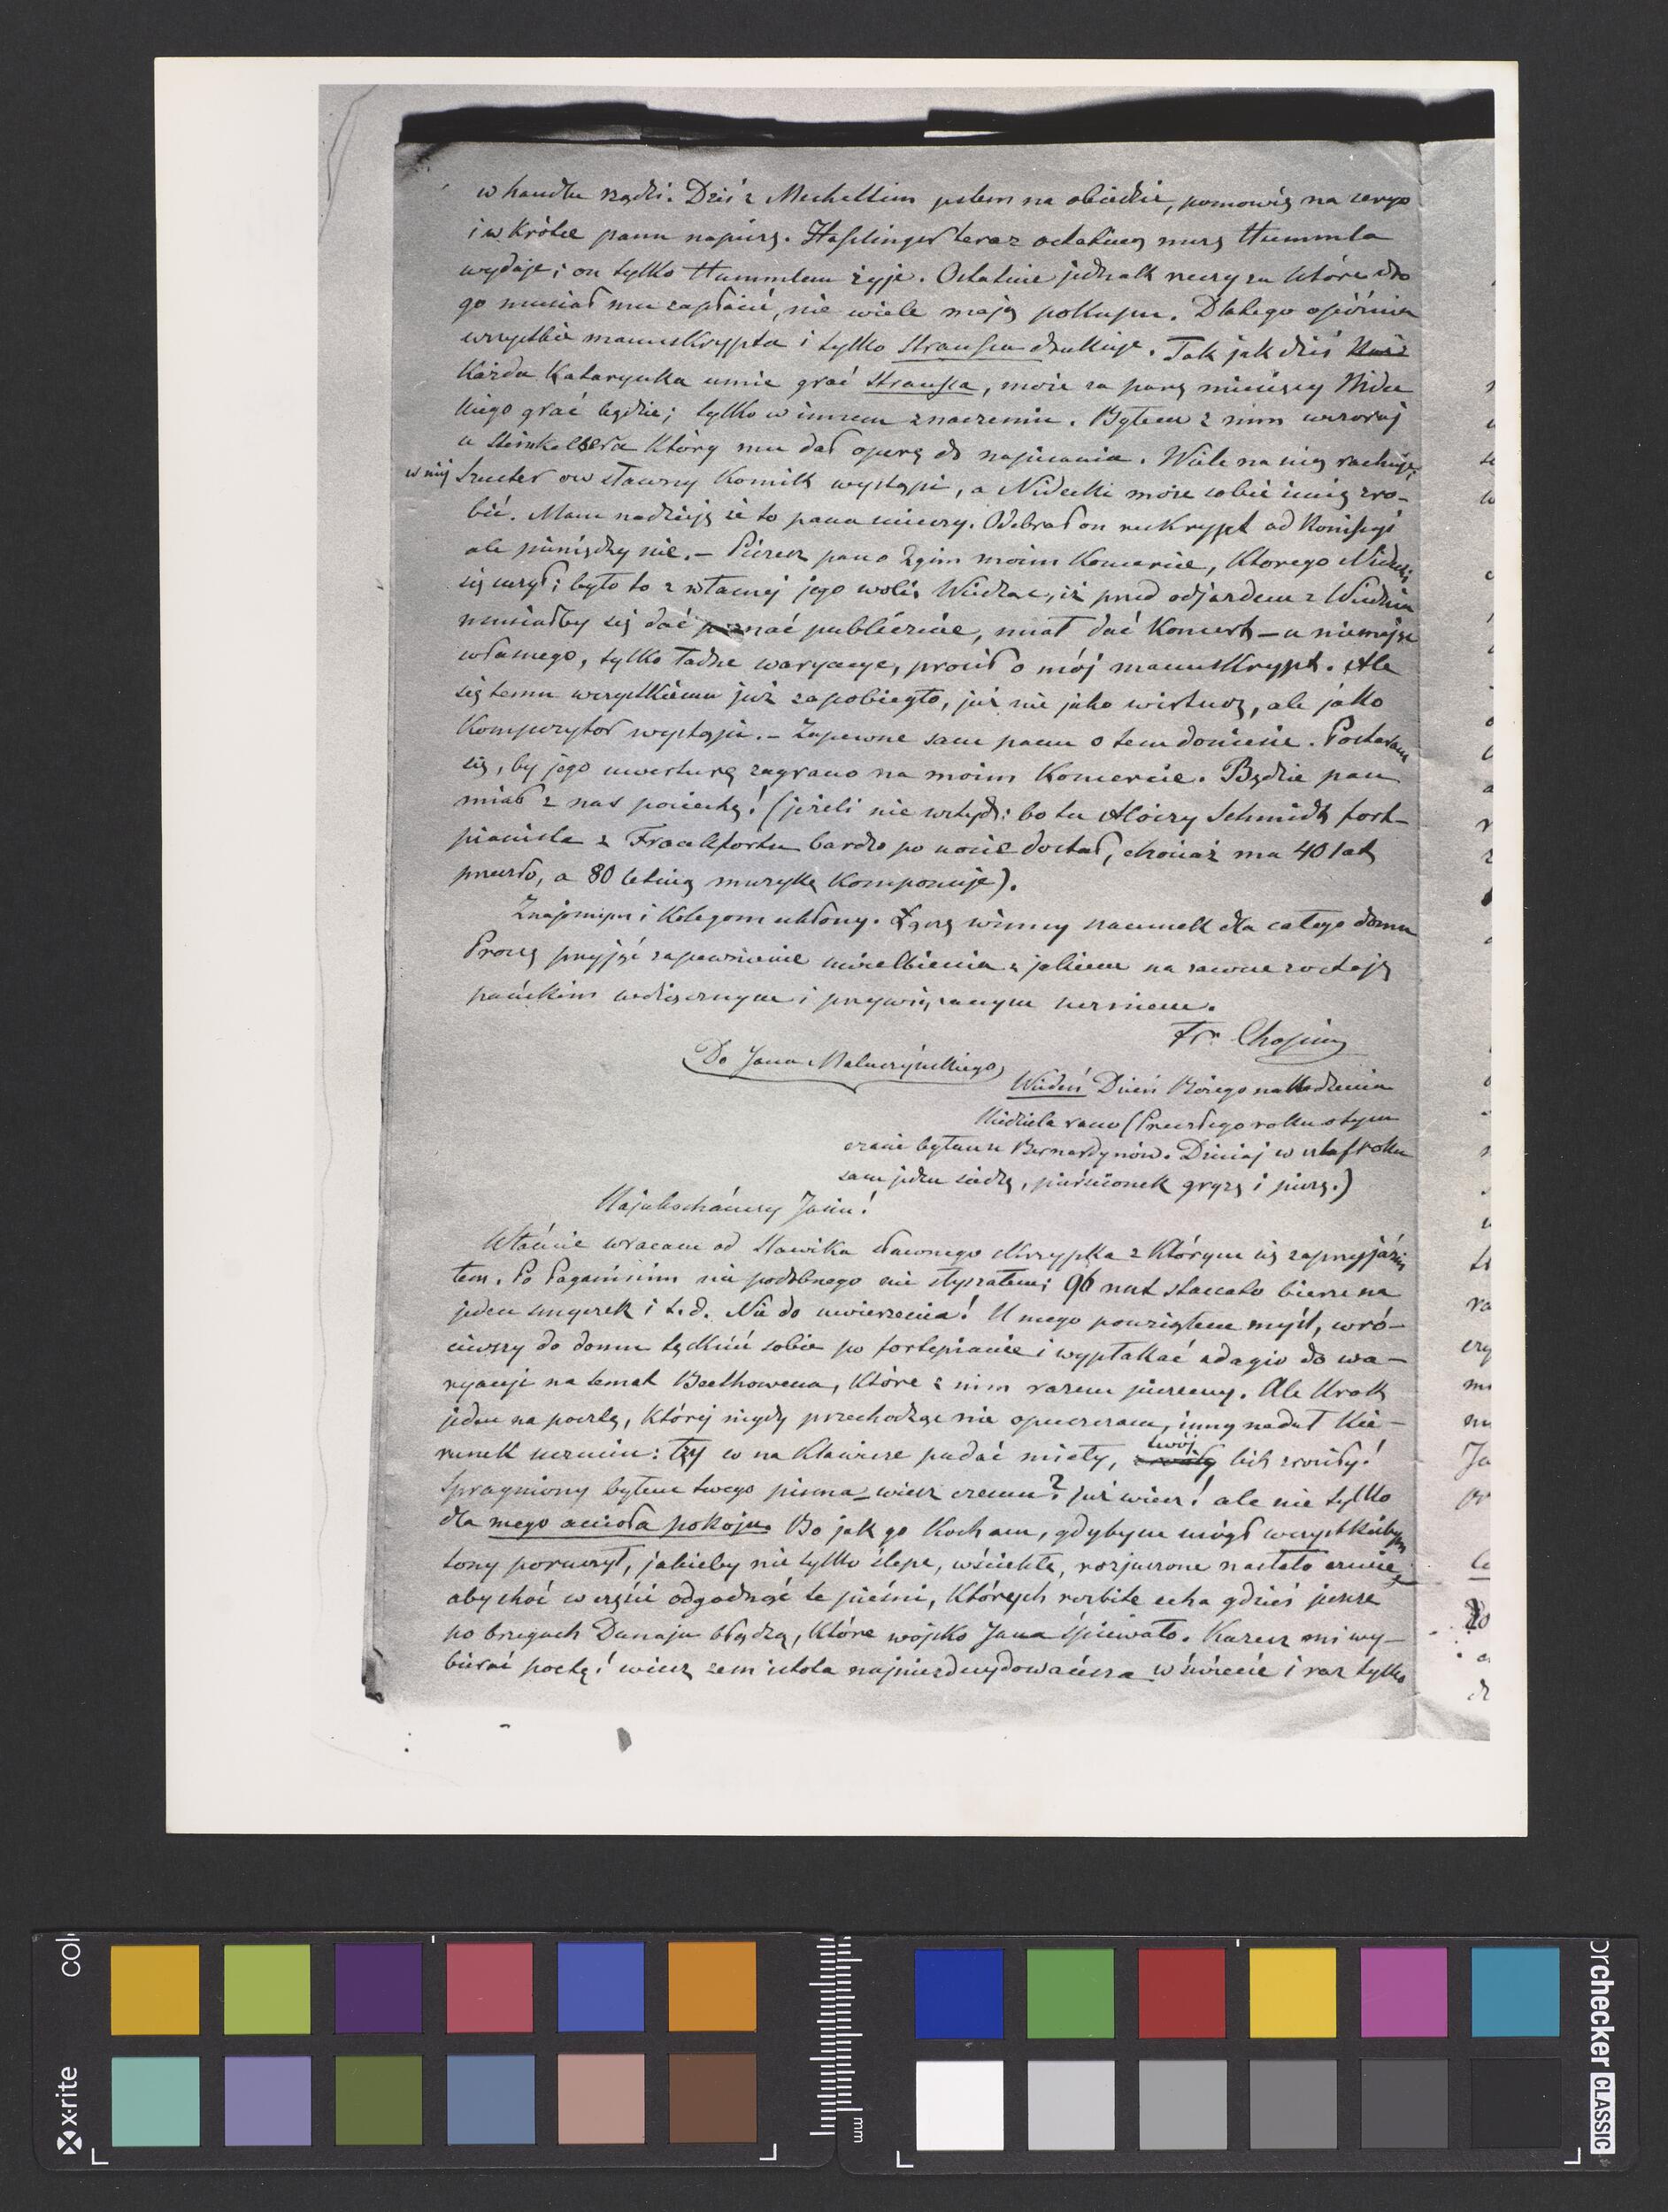 w handlu rządzi. Dziś z Mechettim jestem na obiedzie, pomówię na seryo
i w krótce panu napiszę. Haslinger teraz ostatnią mszę Hummla
wydaje; on tylko Hummlem żyje. Ostatnie jednak rzeczy za które dro
go musiał mu zapłacić, nie wiele mają pokupu. Dlatego opóźnia
wszystkie manuskrypta i tylko Straussa drukuje. Tak jak dziś
każda Kataryнka umie grać Straussa, może za parę miesięcy Nidec
kiego grać będzie; tylko w innem znaczeniu. Byłem z nim wczoraj
u Steinkellera który mu dał operę do napisania. Wiele na nią rachuje;
w niéj Szuster ów sławny Komik wystąpi, a Nidecki może sobie imię zro-
bić. Mam nadzieję że to pana cieszy. Odebrał on reskrypt od Komisyi
ale pieniędzy nie. – Piszesz pan o 2gim moim Koncercie, którego Nidecki
się uczył; było to z własnej jego woli. Widząc, iż przed odjazdem z Wiednia
musiałby się dać poznać publicznie, miał dać Koncert – a niemając
własnego, tylko ładne waryacye, prosił o mój manuskrypt. Ale
się temu wszystkiemu już zapobiegło, już nie jako wirtuoz, ale jako
Kompozytor wystąpi. – Zapewne sam panu o tem doniesie. Postaram
się, by jego uwerturę zagrano na moim Koncercie. Będzie pan
miał z nas pociechę! (jeżeli nie wstyd: bo tu Aloizy Schmidt fort-
pianista z Frankfortu bardzo po nosie dostał, chociaż ma 40 lat
przeszło, a 80 letnią muzykę Komponuje).
Znajomym i Kolegom ukłony. Łączę winny szacunek dla całego domu
Proszę przyjąć zapewnienie uwielbienia z jakiem na zawsze zostaję
pańskim wdzięcznym i przywiązanym uczniem.
Fr. Chopin
Do Jana Matuszyńskiego
Wiedeń Dzień Bożego narodzenia
Niedziela rano (Przeszłego roku o tym
czasie byłem u Bernardynów. Dzisiaj w szlafroku
sam jeden siedzę, pierścionek gryzę i piszę.)
Najukochańszy Jasiu!
Właśnie wracam od Slawika sławnego skrzypka z którym się zaprzyjaźni
łem. Po Paganinim nic podobnego nie słyszałem; 96 nut staccato bierze na
jeden smyczek i t.d. Nie do uwierzenia! U niego powziąłem myśl, wró-
ciwszy do domu tęsknić sobie po fortepianie i wypłakać adagio do wa-
ryacyi na temat Beethowena, które z nim razem piszemy. Ale krok
jeden na pocztę, której nigdy przechodząc nie opuszczam, inny nadał kie-
runek uczuciu: łzy co na klawisze padać miały, twój list zrosiły!
Spragniony byłem twego pisma – wiesz czemu? już wiesz! ale nie tylko
dla mego anioła pokoju. Bo jak go kocham, gdybym mógł wszystkiebym
tony poruszył, jakieby nie tylko ślepe, wściekłe, rozjuszone nasłało czucie
aby choć w części odgadnąć te pieśni, których rozbite echa gdzieś jeszcze
po brzegach Dunaju błądzą, które wojsko Jana śpiewało. Każesz mi wy-
bierać poetę! wiesz żem istota najniezdecydowańsza w świecie i raz tylko
x-rite
colorchecker CLASSIC
mm